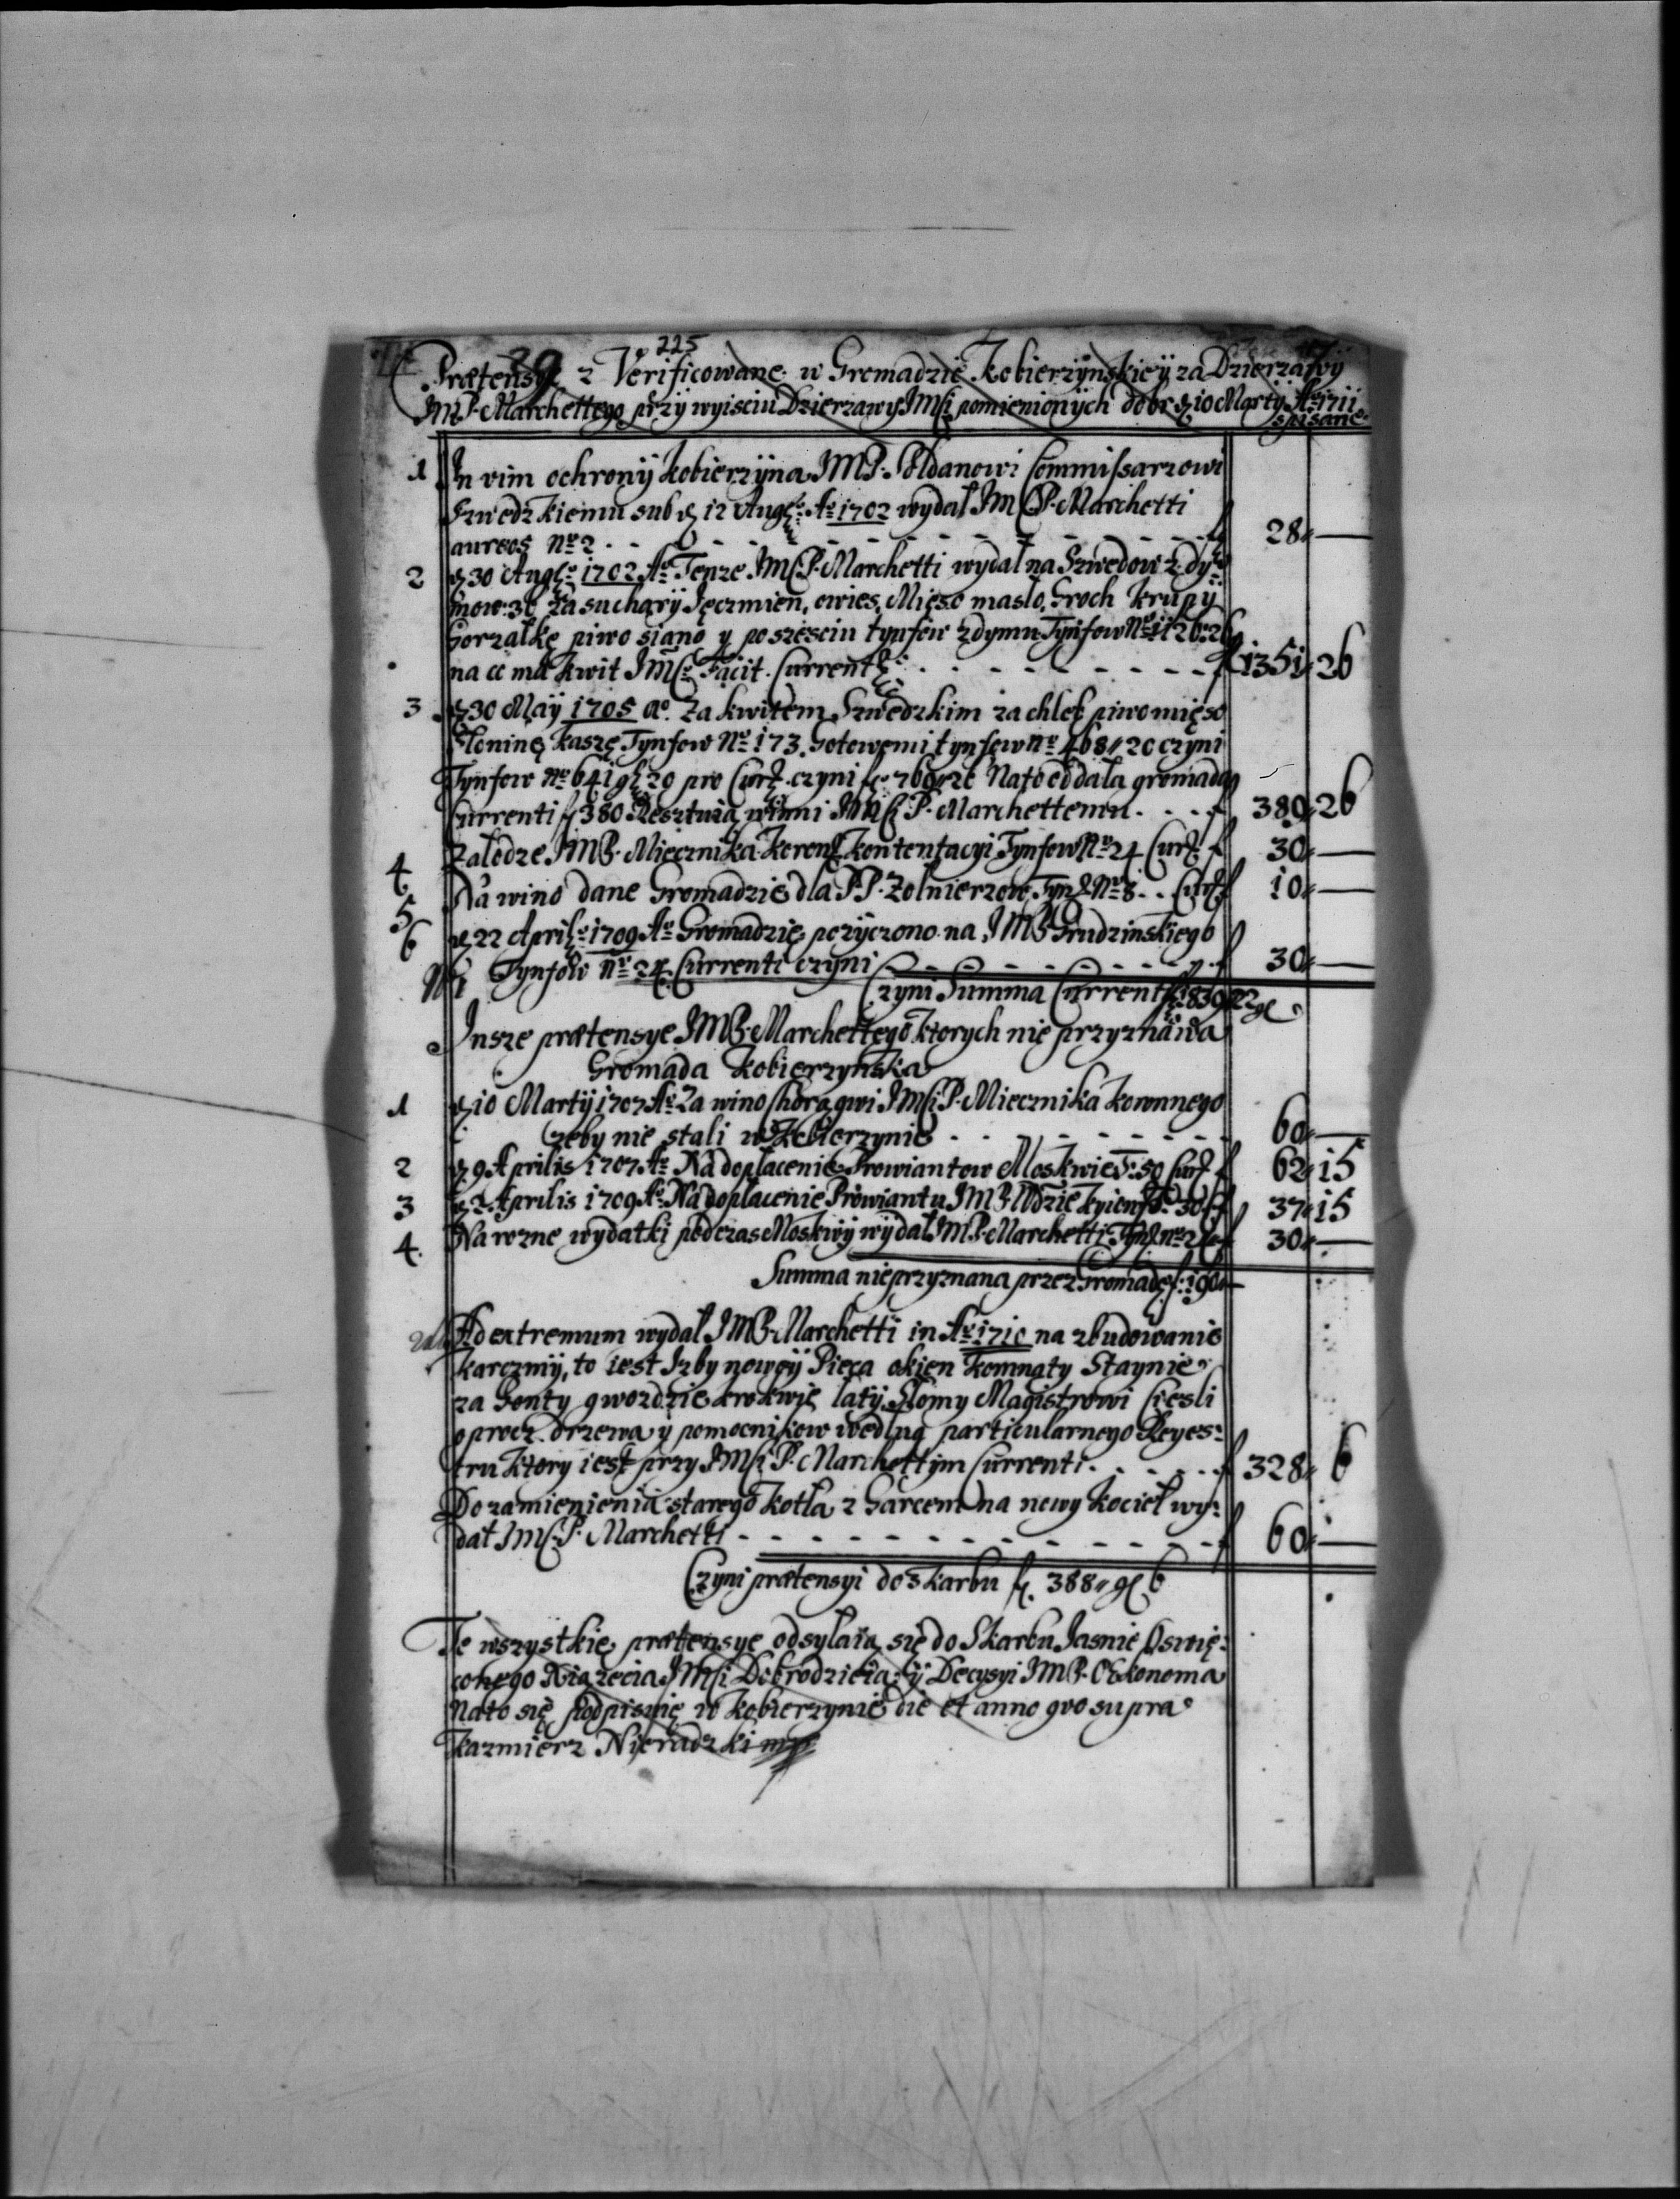 225
39
Prætensye z Verificowane w Gromadzie Kobierzynskiey za Dzierzawy
IMP. Marchettego przy wyisciu Dzierzawy IMSi pomienionych dobr d. 10 Marty Ao 1711
spisane
1 In vim ochrony Kobierzyna IMP. Soldanowi Commissarzowi
Szwedzkiemu sub d. 12 Aug: Ao 1702 wydał IMSP. Marchetti
aureos No 2 f 28 —
2 d. 30 Aug: 1702 Ao Tenze IMSP. Marchetti wydał na Szwedow z dy:
mow: za suchary Jęczmien, owies, Mięso masło, Groch Krupy
Gorzałkę piwo siano y po szesciu tynfow z dymu Tynfow No 1126:26
na co ma kwit IMSc Facit Current: f 1351 26
3 d. 30 May 1705 ao. Za kwitem Szwedzkim za chleb piwo mięso
Słoninę Kaszę Tynfow No 173. Gotowemi tynfow No 468 20 czyni
Tynfow No 641 gr 20 pro Curr. czyni Na to oddała gromada
Currenti f 380 Resztuią winni IMSi P. Marchettemu f 380 26
4 Załodze IMP. Miecznika Koron. kontentacyi Tynfow No 24 Curr f 30 —
5 Na wino dane Gromadzie dla PP. Zołnierzow Tynf. No 8 Curr f 10 —
6 d. 22 April: 1709 Ao Gromadzie pozyczono na IMP Grudzinskiego
Tynfow No 24 Currenti czyni f 30 —
Czyni Summa Current
Insze prætensye IMP. Marchettego ktorych nie przyznawa
Gromada Kobierzynska
1 d. 10 Marty 1707 Ao Za wino Chorągwi IMSi P. Miecznika Koronnego
zeby nie stali w Kobierzynie 60 —
2 d. 9 Aprilis 1707 Ao Na dopłacenie Prowiantow Moskwie T: 50 Curr f 62 15
3 d. 2 Aprilis 1709 Ao Na dopłacenie Prowiantu IMP 30 f 37 15
4. Na rozne wydatki podczas Moskwy wydał IMP. Marchetti Tynf. No f 30 —
Summa nieprzyznana przez Gromadę f: 190 —
Ad extremum wydał IMP. Marchetti in Ao 1710 na zbudowanie
karczmy, to iest Izby nowey Pieca okien Komnaty Staynie
za Gonty gwozdzie krokwie łaty Słomy Magistrowi Ciesli
oprocz drzewa y pomocnikow wedlug particularnego Reyes:
tru ktory iest przy IMSi P. Marchettym Currenti f 328 6
Do zamienienia starego kotła z Garcem na nowy kocieł wy:
dał IMSP. Marchetti f 60 —
Czyni prætensyi do Skarbu f. 388 gr 6
Te wszystkie prætensye odsyłaią się do Skarbu Jasnie Oswię:
conego Xiązecia IMSi Dobrodzieia y Decysyi IMP. Œkonoma
Na to się podpisuię w Kobierzynie die et anno quo supra
Kazmierz Nieradzki mp